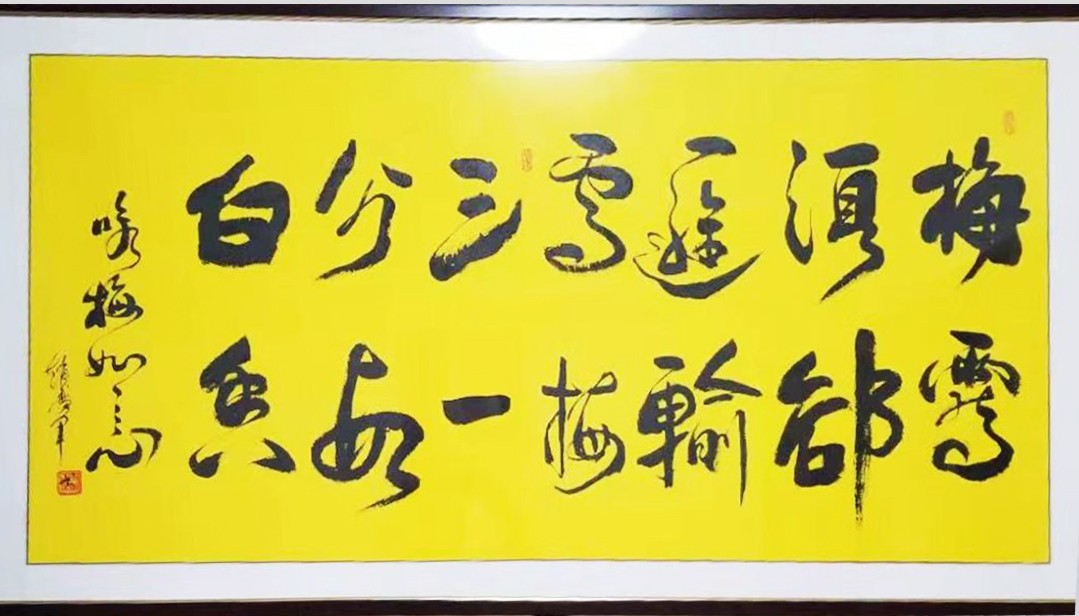 梅須遜雪三分白
雪卻輸梅一段香
咏梅如意